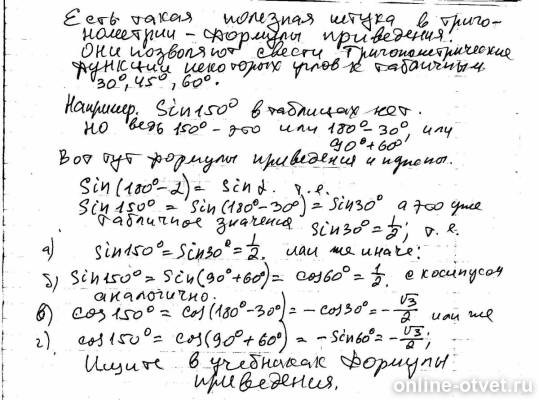 Есть такая полезная штука в триго-
нометрии - формулы приведения.
Они позволяют свести тригонометрические
функции некоторых углов к табличным
30°, 45°, 60°.
Например. Sin150° в таблицах нет.
Но ведь 150° - это или 180° - 30°, или
90° + 60°
Вот тут формулы приведения и нужны.
Sin(180° - α) = Sin α. т.е.
Sin150° = Sin(180° - 30°) = Sin30° а это уже
табличное значение Sin30° = 1/2; т.е.
а) Sin150° = Sin30° = 1/2. или же иначе:
б) Sin150° = Sin(90° + 60°) = cos60° = 1/2. с косинусом
аналогично.
в) cos150° = cos(180° - 30°) = - cos30° = - √3/2 или же
г) cos150° = cos(90° + 60°) = - Sin60 = - √3/2;
Ищите в учебниках формулы
приведения.
online-otvet.ru